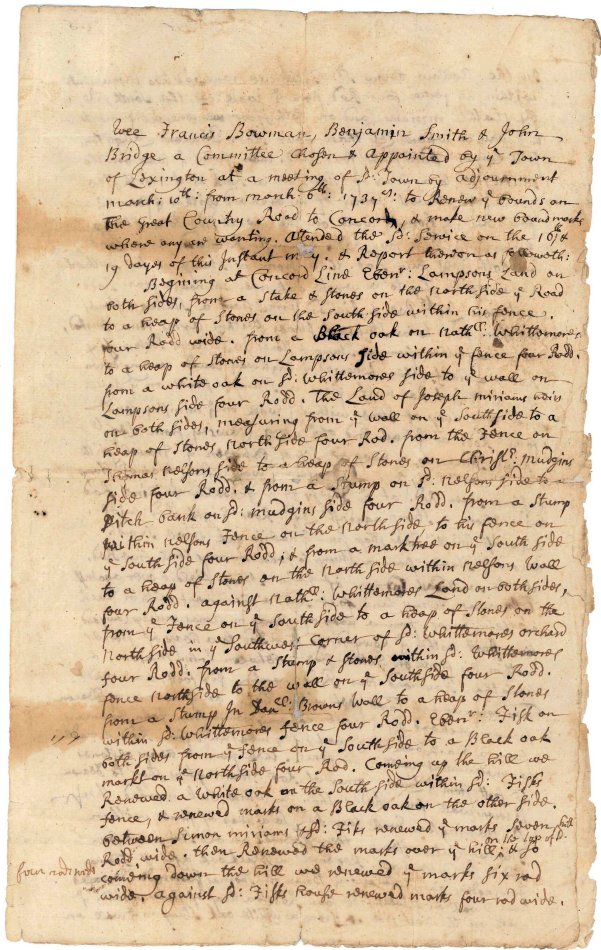 Wee Francis Bowman, Benjamin Smith & John
Bridge a Committee Chosen & Appointed by ye Town
of Lexington at a meeting of sd: Town by adjournment
march: 10th: from march: 6th: 1737/8: to Renew ye bounds on
the Great Country Road to Concord, & make new boundmarks
where any are wanting. Attended the sd: Service on the 16th &
19 dayes of this Instant & Report thereon as followeth:
Begining at Concord Line Ebenr: Lampsons Land on
both sides, from a Stake & Stones on the North side ye Road
to a heap of Stones on the South side within his fence.
four Rodd wide. from a Black oak on Nathll: Whittemores
to a heap of Stones on Lampsons Side within ye fence four Rodd.
from a white oak on sd: Whittemores side to ye wall on
Lampsons side four Rodd. The Land of Joseph miriams heirs
on both sides, measuring from ye wall on ye South side to a
heap of Stones North side four Rod. from the Fence on
Thomas Nelsons side to a heap of Stones on Christr. mudgins
side four Rodd. & from a Stump on sd: Nelsons side to a
Ditch bank on sd: mudgins side four Rodd. from a Stump
within Nelsons Fence on the North side, to his fence on
ye South side four Rodd; & from a mark tree on ye South side
to a heap of Stones on the North side within Nelsons Wall
four Rodd. against Nathll: Whittemores Land on both sides,
from ye Fence on ye South side to a heap of Stones on the
North side in ye Southwest Corner of sd: Whittemores orchard
four Rodd. from a Stump & Stones within sd: Whittemores
fence North side to the wall on ye South side four Rodd.
from a Stump In Danll: Browns Wall to a heap of Stones
within sd: Whittemores fence four Rodd. Ebenr: Fisk on
both sides from ye Fence on ye South side to a Black oak
markt on ye North side four Rod. Coming up the hill we
Renewed a White oak on the South side within sd: Fisks
fence, & renewed marks on a Black oak on the other side.
between Simon miriams & sd: Fisks renewed ye marks seven
Rodd wide. then Renewed the marks over ye hill on the top of sd: & so
four rods wide
comeing down the hill we renewed ye marks six rod
wide. against sd: Fisks house renewed marks four rod wide.